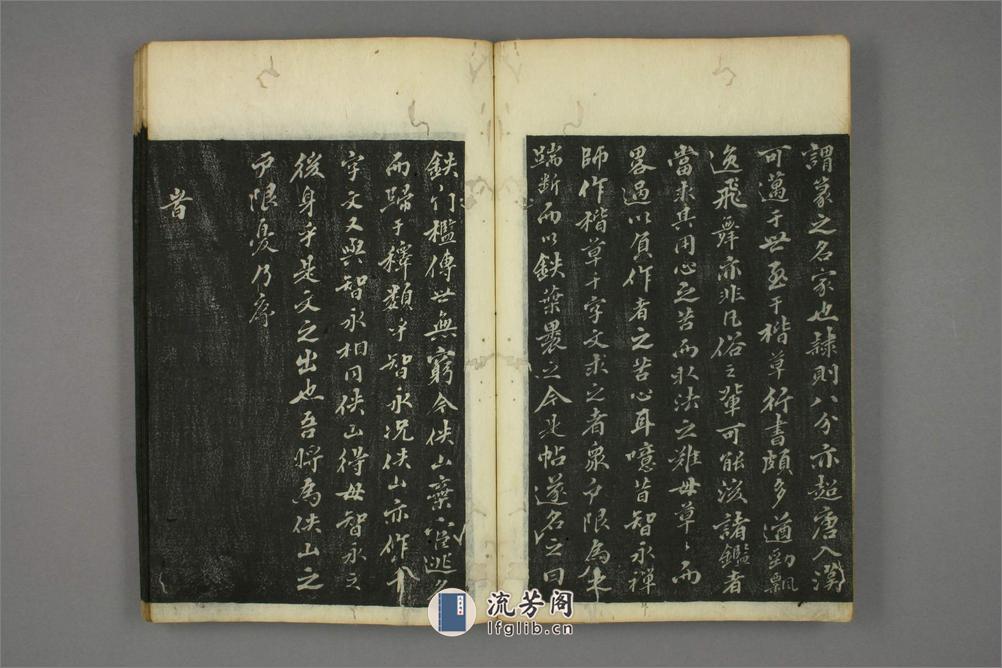 謂篆之名家也隸則八分亦超唐入漢
可邁于世至于楷草行書頗多遒勁飄
逸飛舞亦非凡俗之輩可能設諸鑑者
當求其用心之苦而取法之難毋草〻而
畧過以負作者之苦心耳噫昔智永禪
師作楷草千字文求之者衆戶限為人
踹斷而以鉄葉褁之今是帖遂名之曰
鉄門檻傳世無窮今佚山棄官逃名
而歸于釋類乎智永况佚山亦作千
字文又與智永相同佚山得毋智永之
後身乎是文之出也吾將為佚山之
戶限憂乃序
昔
流芳阁
lfglib.cn